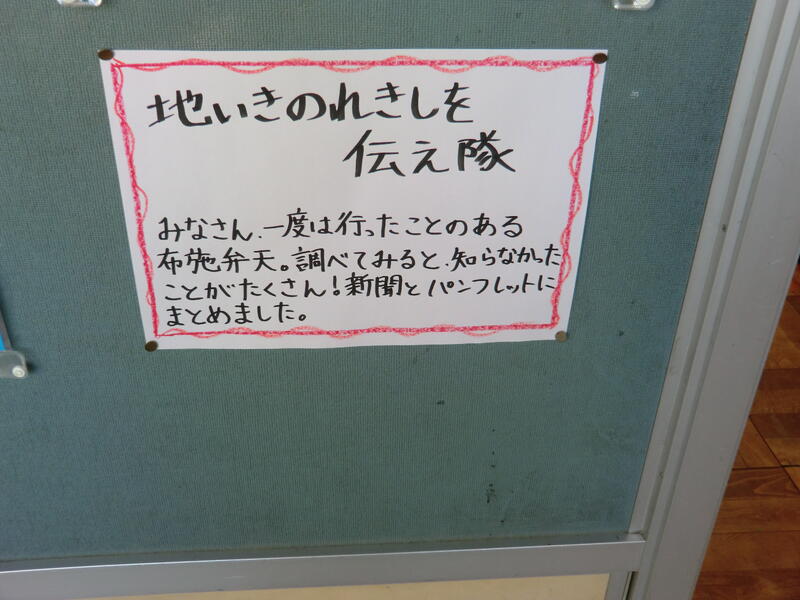 地いきのれきしを
伝え隊
みなさん、一度は行ったことのある
布施弁天。調べてみると、知らなかった
ことがたくさん!新聞とパンフレットに
まとめました。